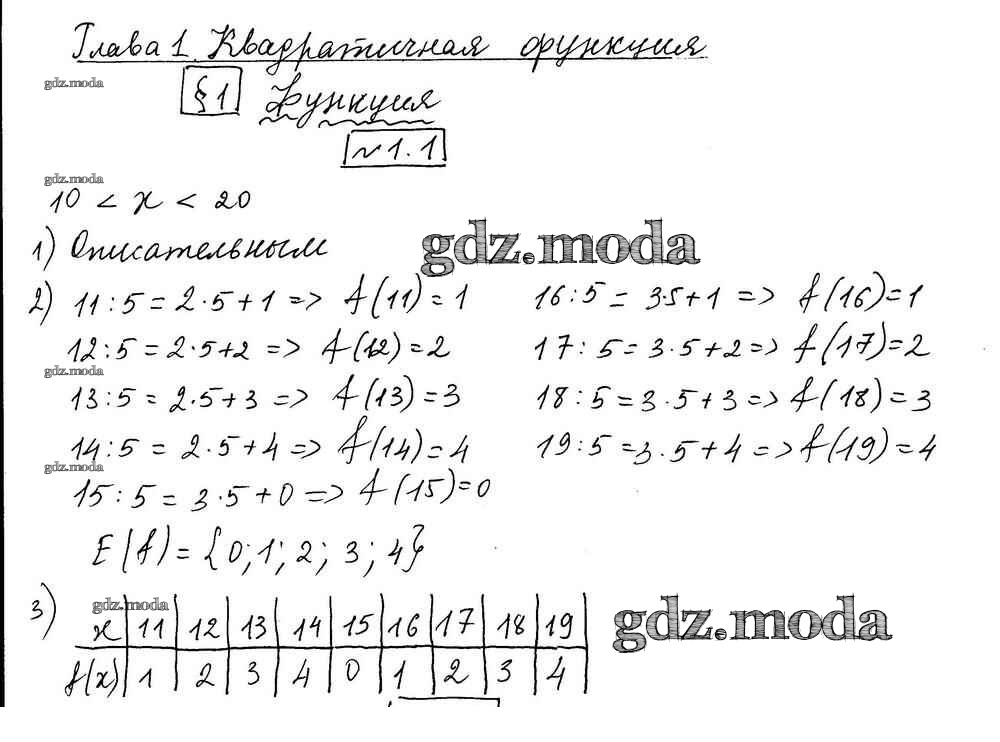 Глава 1. Квадратичная функция
gdz.moda
§1 Функция
№1.1
gdz.moda
10 < x < 20
1) Описательным
gdz.moda
2) 11:5 = 2·5+1 => f(11)=1 16:5 = 3·5+1 => f(16)=1
12:5 = 2·5+2 => f(12)=2 17:5 = 3·5+2 => f(17)=2
gdz.moda
13:5 = 2·5+3 => f(13)=3 18:5 = 3·5+3 => f(18)=3
14:5 = 2·5+4 => f(14)=4 19:5 = 3·5+4 => f(19)=4
gdz.moda
15:5 = 3·5+0 => f(15)=0
E(f) = {0; 1; 2; 3; 4}
3) gdz.moda
gdz.moda
x 11 12 13 14 15 16 17 18 19
f(x) 1 2 3 4 0 1 2 3 4